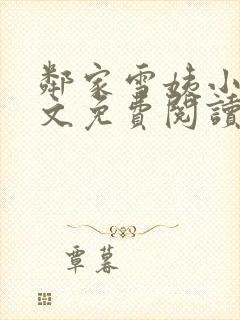 鄰家雪姨小
文免費閱讀
覃暮